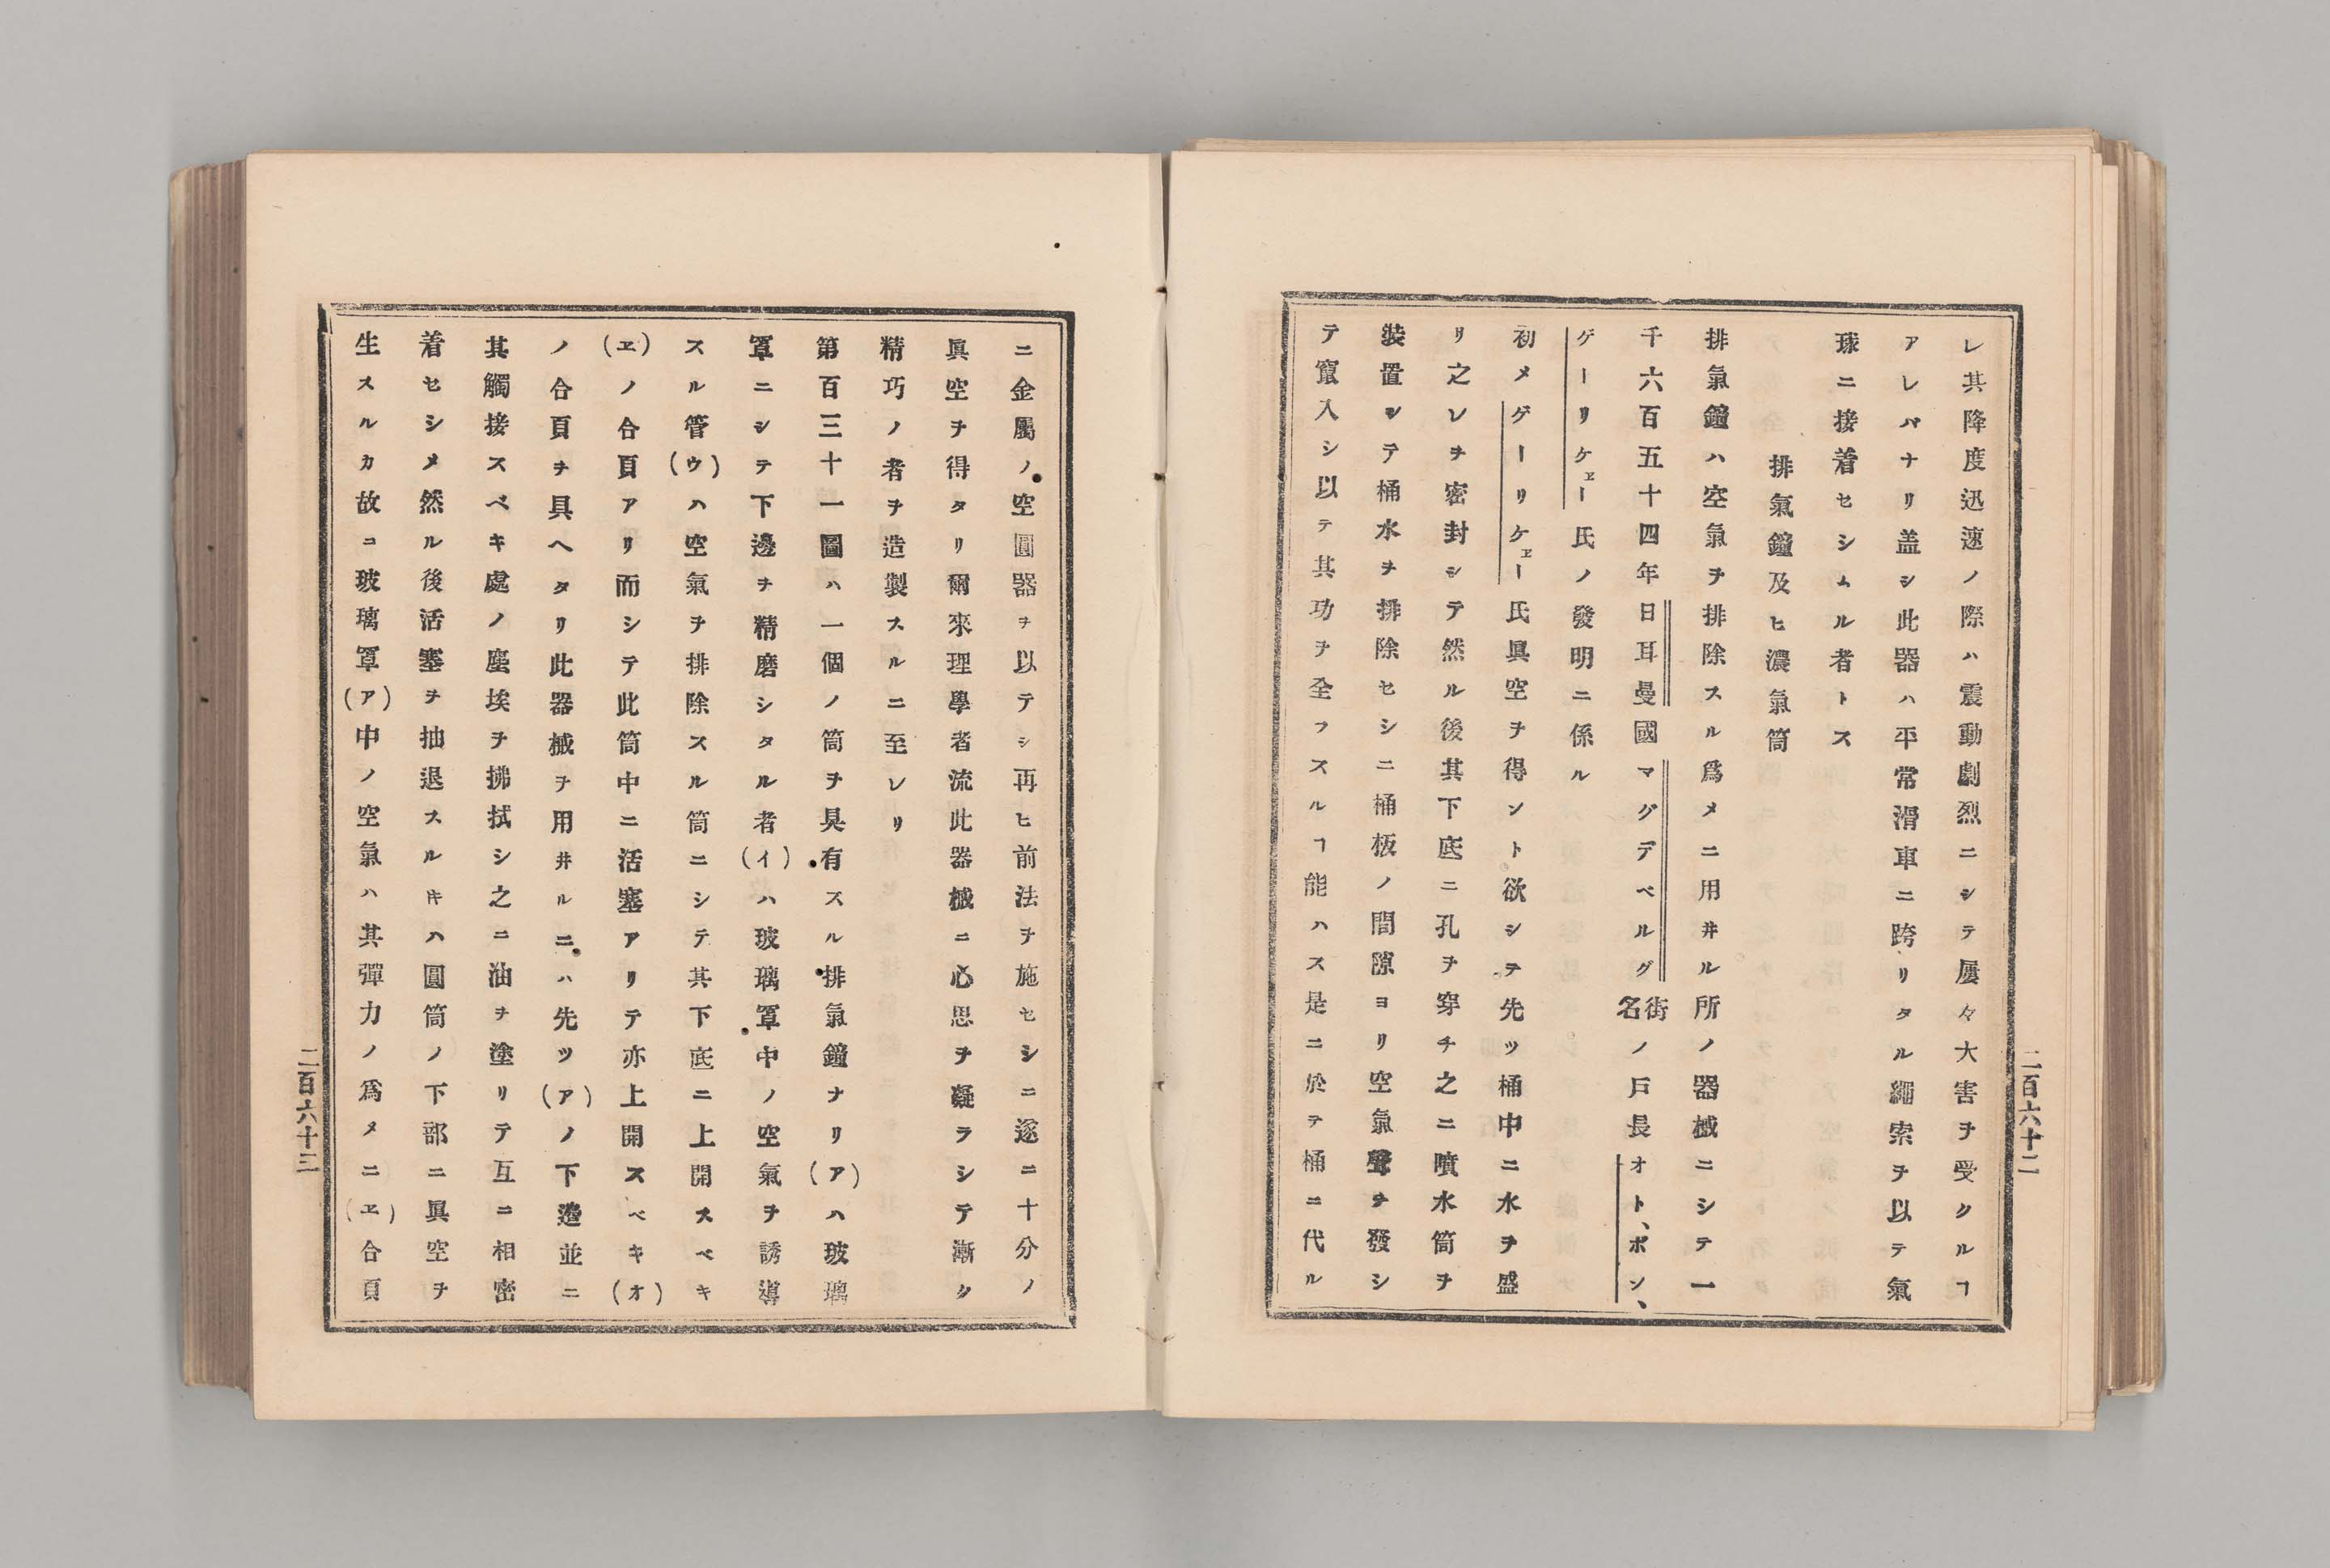 レ其降度迅速ノ際ハ震動劇烈ニシテ屢々大害ヲ受クルヿ
アレバナリ盖シ此器ハ平常滑車ニ跨リタル繩索ヲ以テ氣
球ニ接着セシムル者トス
排氣鐘及ヒ濃氣筒
排氣鐘ハ空氣ヲ排除スル爲メニ用井ル所ノ器械ニシテ一
千六百五十四年日耳曼國マグデベルグ街名ノ戸長オト、ボン、
ゲーリケヱー氏ノ發明ニ係ル
初メゲーリケヱー氏眞空ヲ得ント欲シテ先ツ桶中ニ水ヲ盛
リ之レヲ密封シテ然ル後其下底ニ孔ヲ穿チ之ニ噴水筒ヲ
裝置シテ桶水ヲ排除セシニ桶板ノ間隙ヨリ空氣聲ヲ發シ
テ竄入シ以テ其功ヲ全フスルヿ能ハス是ニ於テ桶ニ代ル
二百六十二
ニ金屬ノ空圓器ヲ以テシ再ヒ前法ヲ施セシニ逐ニ十分ノ
眞空ヲ得タリ爾來理學者流此器械ニ心思ヲ凝ラシテ漸ク
精巧ノ者ヲ造製スルニ至レリ
第百三十一圖ハ一個ノ筒ヲ具有スル排氣鐘ナリ(ア)ハ玻璃
罩ニシテ下邊ヲ精磨シタル者(イ)ハ玻璃罩中ノ空氣ヲ誘導
スル管(ウ)ハ空氣ヲ排除スル筒ニシテ其下底ニ上開スベキ
(ヱ)ノ合頁アリ而シテ此筒中ニ活塞アリテ亦上開スベキ(オ)
ノ合頁ヲ具ヘタリ此器械ヲ用井ルニハ先ツ(ア)ノ下邊並ニ
其觸接スベキ處ノ塵埃ヲ拂拭シ之ニ油ヲ塗リテ互ニ相密
着セシメ然ル後活塞ヲ抽退スルキハ圓筒ノ下部ニ眞空ヲ
生スルカ故コ玻璃罩(ア)中ノ空氣ハ其彈力ノ爲メニ(ヱ)合頁
二百六十三